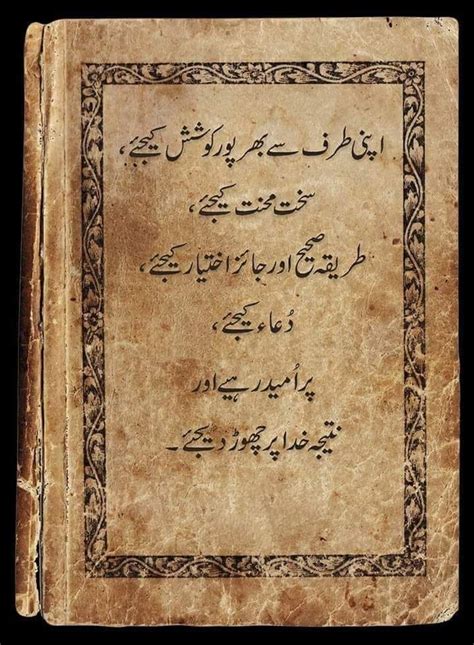 اپنی طرف سے بھرپور کوشش کیجئے،
سخت محنت کیجئے،
طریقہ صحیح اور جائز اختیار کیجئے،
دُعاء کیجئے،
پر اُمید رہیے اور
نتیجہ خدا پر چھوڑ دیجئے۔